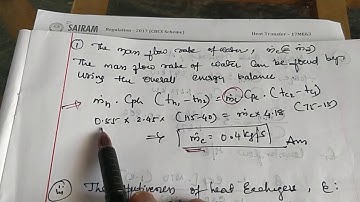 SAIRAM
Regulation - 2017 [CBCS Scheme]
Heat Transfer - 17ME63
① The mass flow rate of water, ṁc (ṁ2)
The mass flow rate of water can be found by
using the overall energy balance
→ ṁh . Cph (th1 - th2) = ṁc Cpc . (tc2 - tc1)
0.55 × 2.45 × (115-40) = ṁc × 4.18 (75-15)
ṁc = 0.4 kg/s Ans
The effectiveness of heat Exchangers, ε: